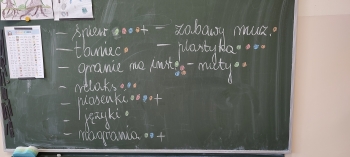 - śpiew + - zabawy muz.
- taniec - plastyka
- granie na inst. - nuty
- relaks
- piosenki +
- języki
- nagrania +